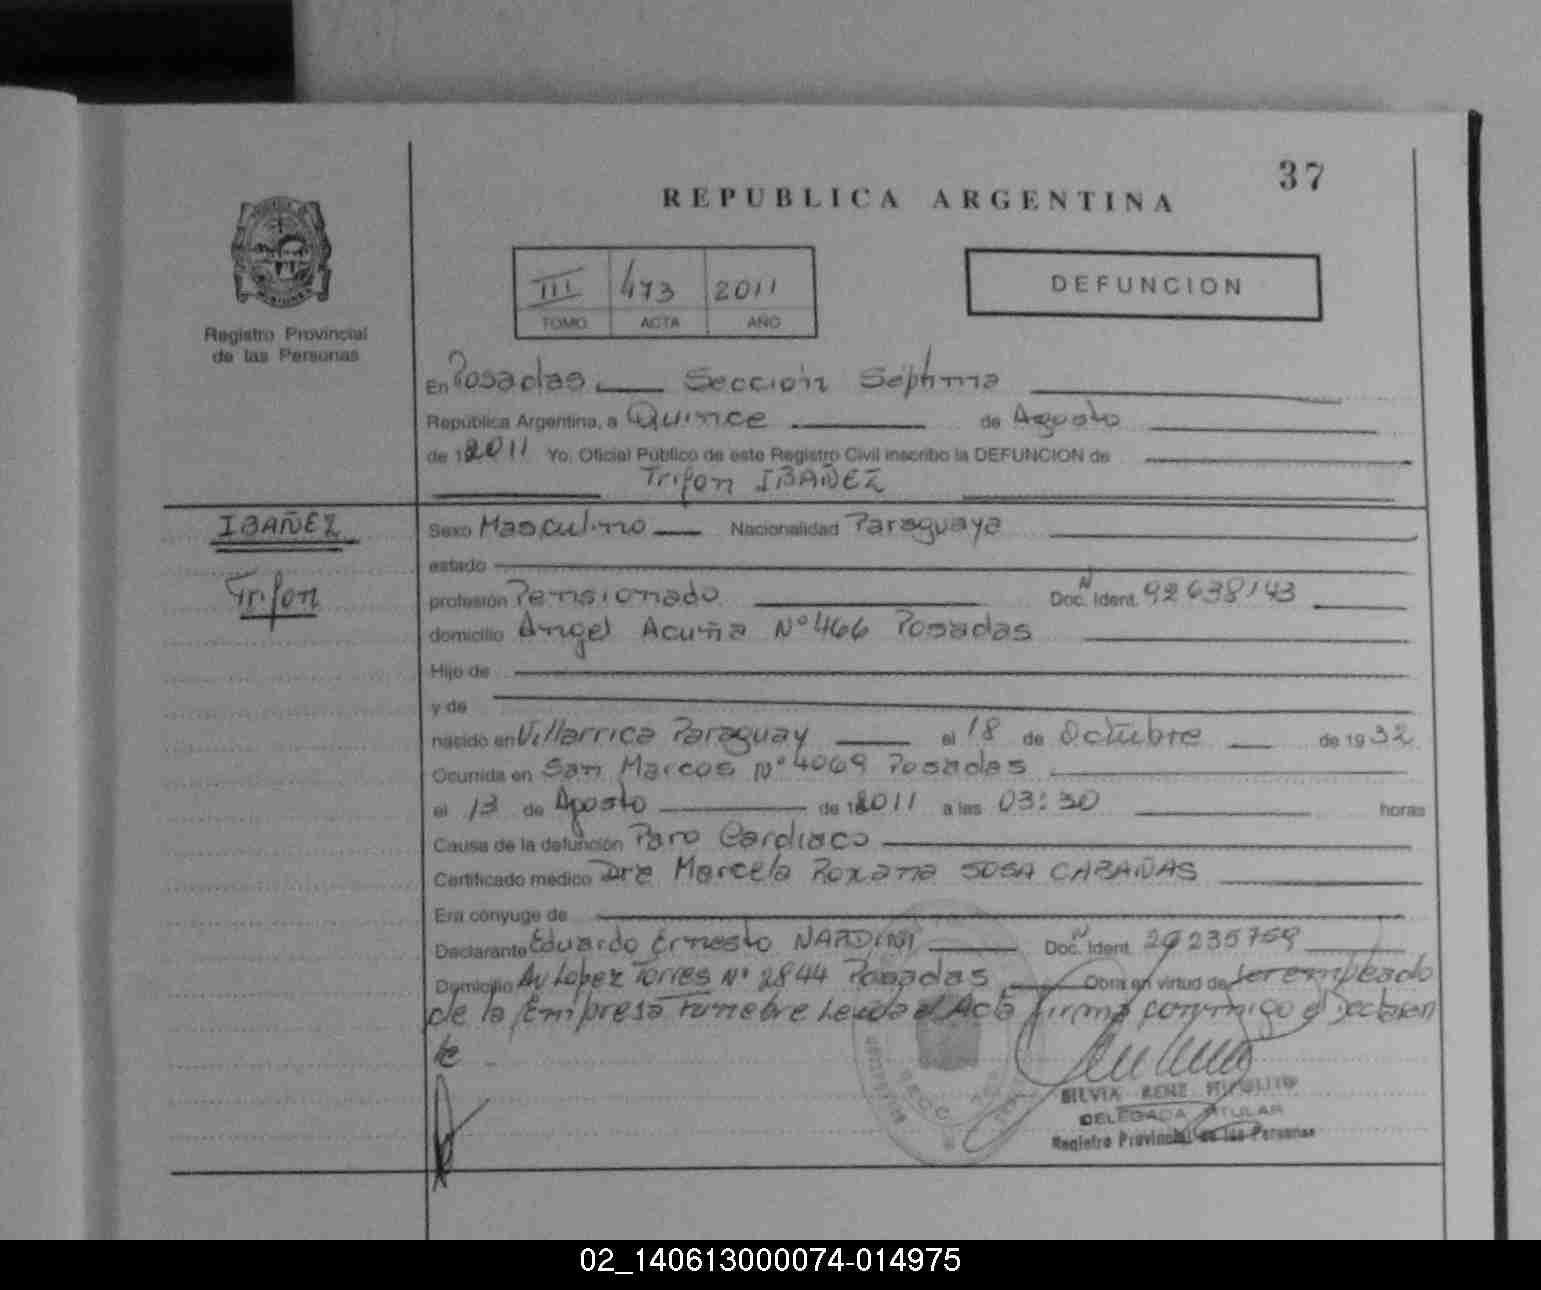 37
REPUBLICA ARGENTINA
III 473 2011
TOMO ACTA AÑO
DEFUNCION
Registro Provincial
de las Personas
En Posadas Sección Séptima
República Argentina, a Quince de Agosto
de 2011 Yo, Oficial Público de este Registro Civil inscribo la DEFUNCION de
Trifon IBAÑEZ
IBAÑEZ
Trifon
Sexo Masculino Nacionalidad Paraguaya
estado
profesión Pensionado Doc. Ident. N 92638143
domicilio Angel Acuña Nº 466 Posadas
Hijo de
y de
nacido en Villarrica Paraguay el 18 de Octubre de 1932
Ocurrida en San Marcos Nº 4069 Posadas
el 13 de Agosto de 2011 a las 03:30 horas
Causa de la defunción Paro Cardiaco
Certificado médico Dra Marcela Roxana SOSA CABAÑAS
Era cónyuge de
Declarante Eduardo Ernesto NARDINI Doc. Ident. N 29235769
Domicilio Av Lopez Torres Nº 2844 Posadas Obra en virtud de ser empleado
de la Empresa Funebre Leida el Acta firma conmigo el Declaran
te
SILVIA RENE
DELEGADA TITULAR
Registro Provincial de las Personas
02_140613000074-014975